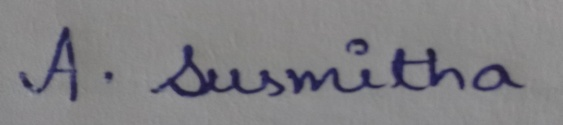 A. Susmitha